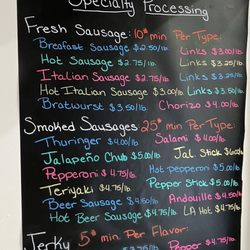 Specialty Processing
Fresh Sausage: 10# min Per Type:
Breafast Sausage $2.50/lb. Links $3.00/lb.
Hot Sausage $2.75/lb. Links $3.25/lb.
Italian Sausage $2.75/lb. Links $3.25/lb.
Hot Italian Sausage $3.00/lb Links $3.50/lb.
Bratwurst $3.50/lb. Chorizo $4.00/lb.
Smoked Sausages 25# min Per Type:
Thuringer $4.00/lb. Salami $4.00/lb.
Jalapeño Chub $5.00/lb. Jal Stick
Pepperoni $4.75/lb. Hot pepperoni $5.00/lb.
Teriyaki $4.75/lb. Pepper Stick $5.00/lb.
Beer Sausage $4.50/lb. Andouille $4.50/lb.
Hot Beer Sausage $4.75/lb. LA Hot $4.75/lb.
Jerky 5# min Per Flavor:
Pepper